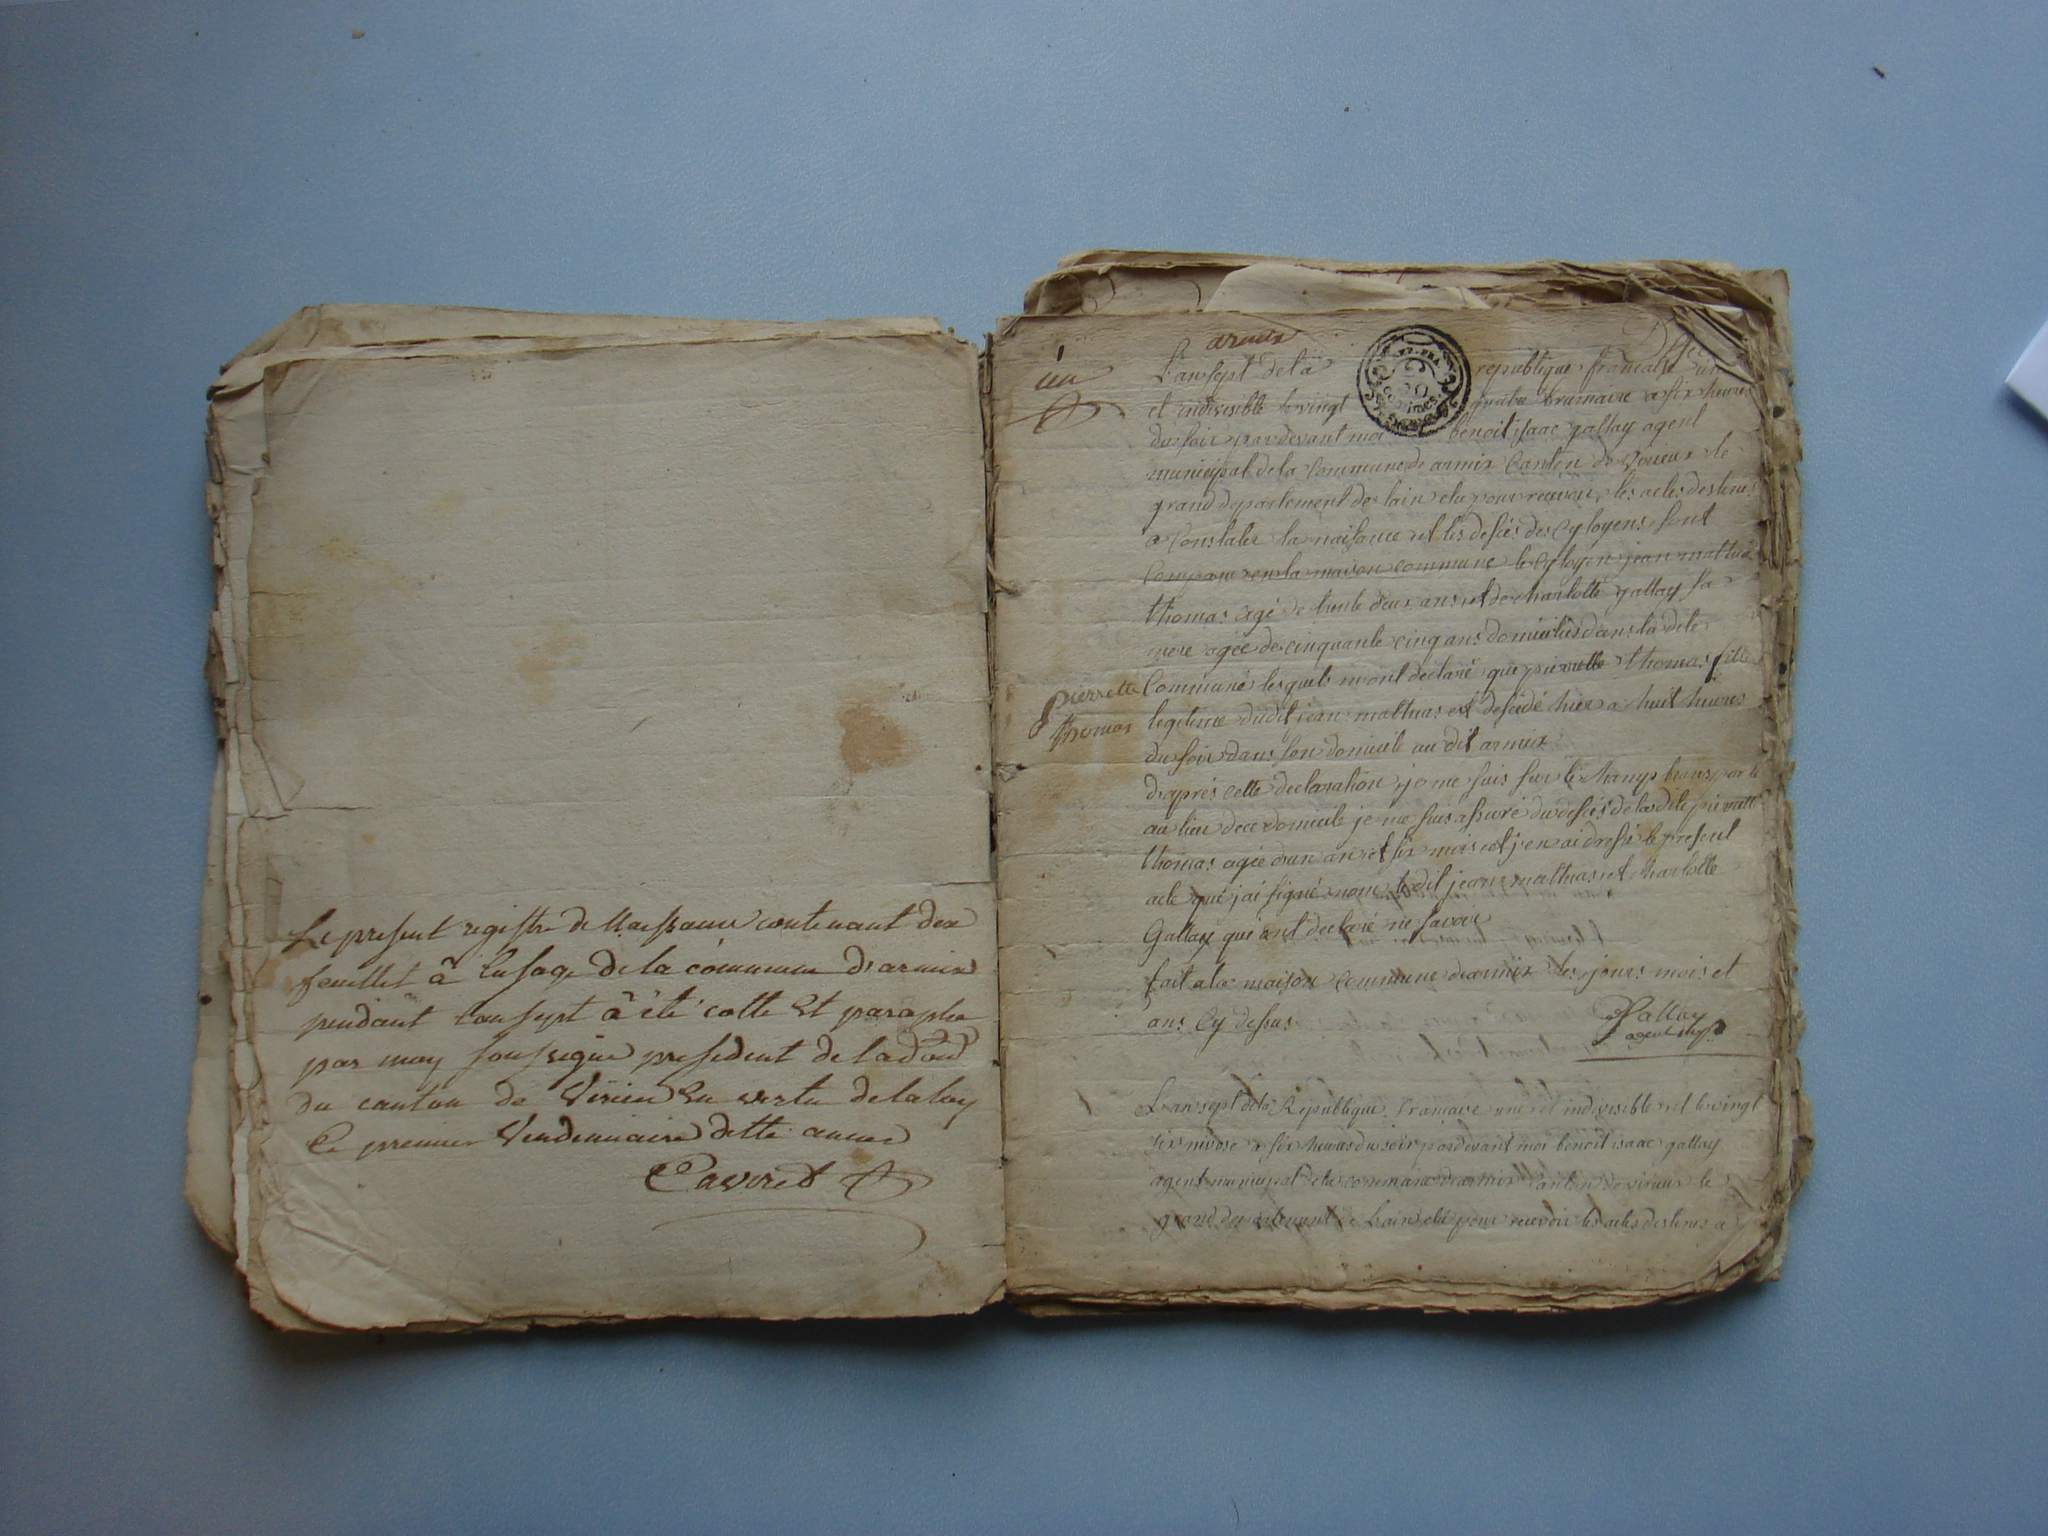 Le present registre de Naissance contenant dix
feuillet â l'usage de la commune d'armix
pendant l'an sept â été cotté Et paraphé
par moy soussigné president de lad
du canton de Virieu En vertu de la loy
Ce premier Vendemiaire dette année
Caviret
un
armix
L'an sept de la republique francaise un
et indivisible le vingt quatre brumaire a six heures
du soir pardevant moi benoit isaac gallay agent
municipal de la Commune de armix Canton de Virieux le
grand departement de lain elu pour recevoir les actes destines
a Constater la naissance et les desces des Cytoyens sont
Comparu en la maison commune le Cytoyen jean mathias
thomas agé de trente deux ans et de charlotte gallay sa
mere agée de cinquante cinq ans domicilies dans la dite
Pierrette
thomas
Commune lesquels m'ont declaré que pierrette thomas fille
legitime dudit jean mathias est descédé hier a huit heures
du soir dans son domicile au dit armix
d'aprés cette declaration je me suis sur le champ transporté
au lieu de ce domicile je me suis assuré du descés de la dite pierrette
thomas agée d'un an et six mois et j'en ai dressé le present
acte que j'ai signé non le dit jean mathias et charlotte
Gallay qui ont declaré ne savoir
fait a la maison commune d'armix les jours mois et
ans Cy dessus
Gallay
agent mpl
L'an sept de la République francaise une et indivisible et le vingt
six nivose a six heures du soir pardevant moi benoit isaac gallay
agent municipal de la commune d'armix Canton de virieux le
grand departement de Lain elu pour recevoir les actes destines a